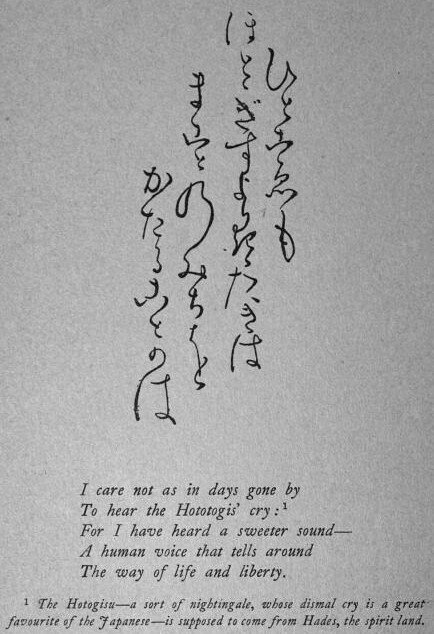 ひとこゑも
ほとゝぎすより たきは
まことのみちを
かたることのは
I care not as in days gone by
To hear the Hototogis' cry:¹
For I have heard a sweeter sound—
A human voice that tells around
The way of life and liberty.
¹ The Hotogisu—a sort of nightingale, whose dismal cry is a great
favourite of the Japanese—is supposed to come from Hades, the spirit land.